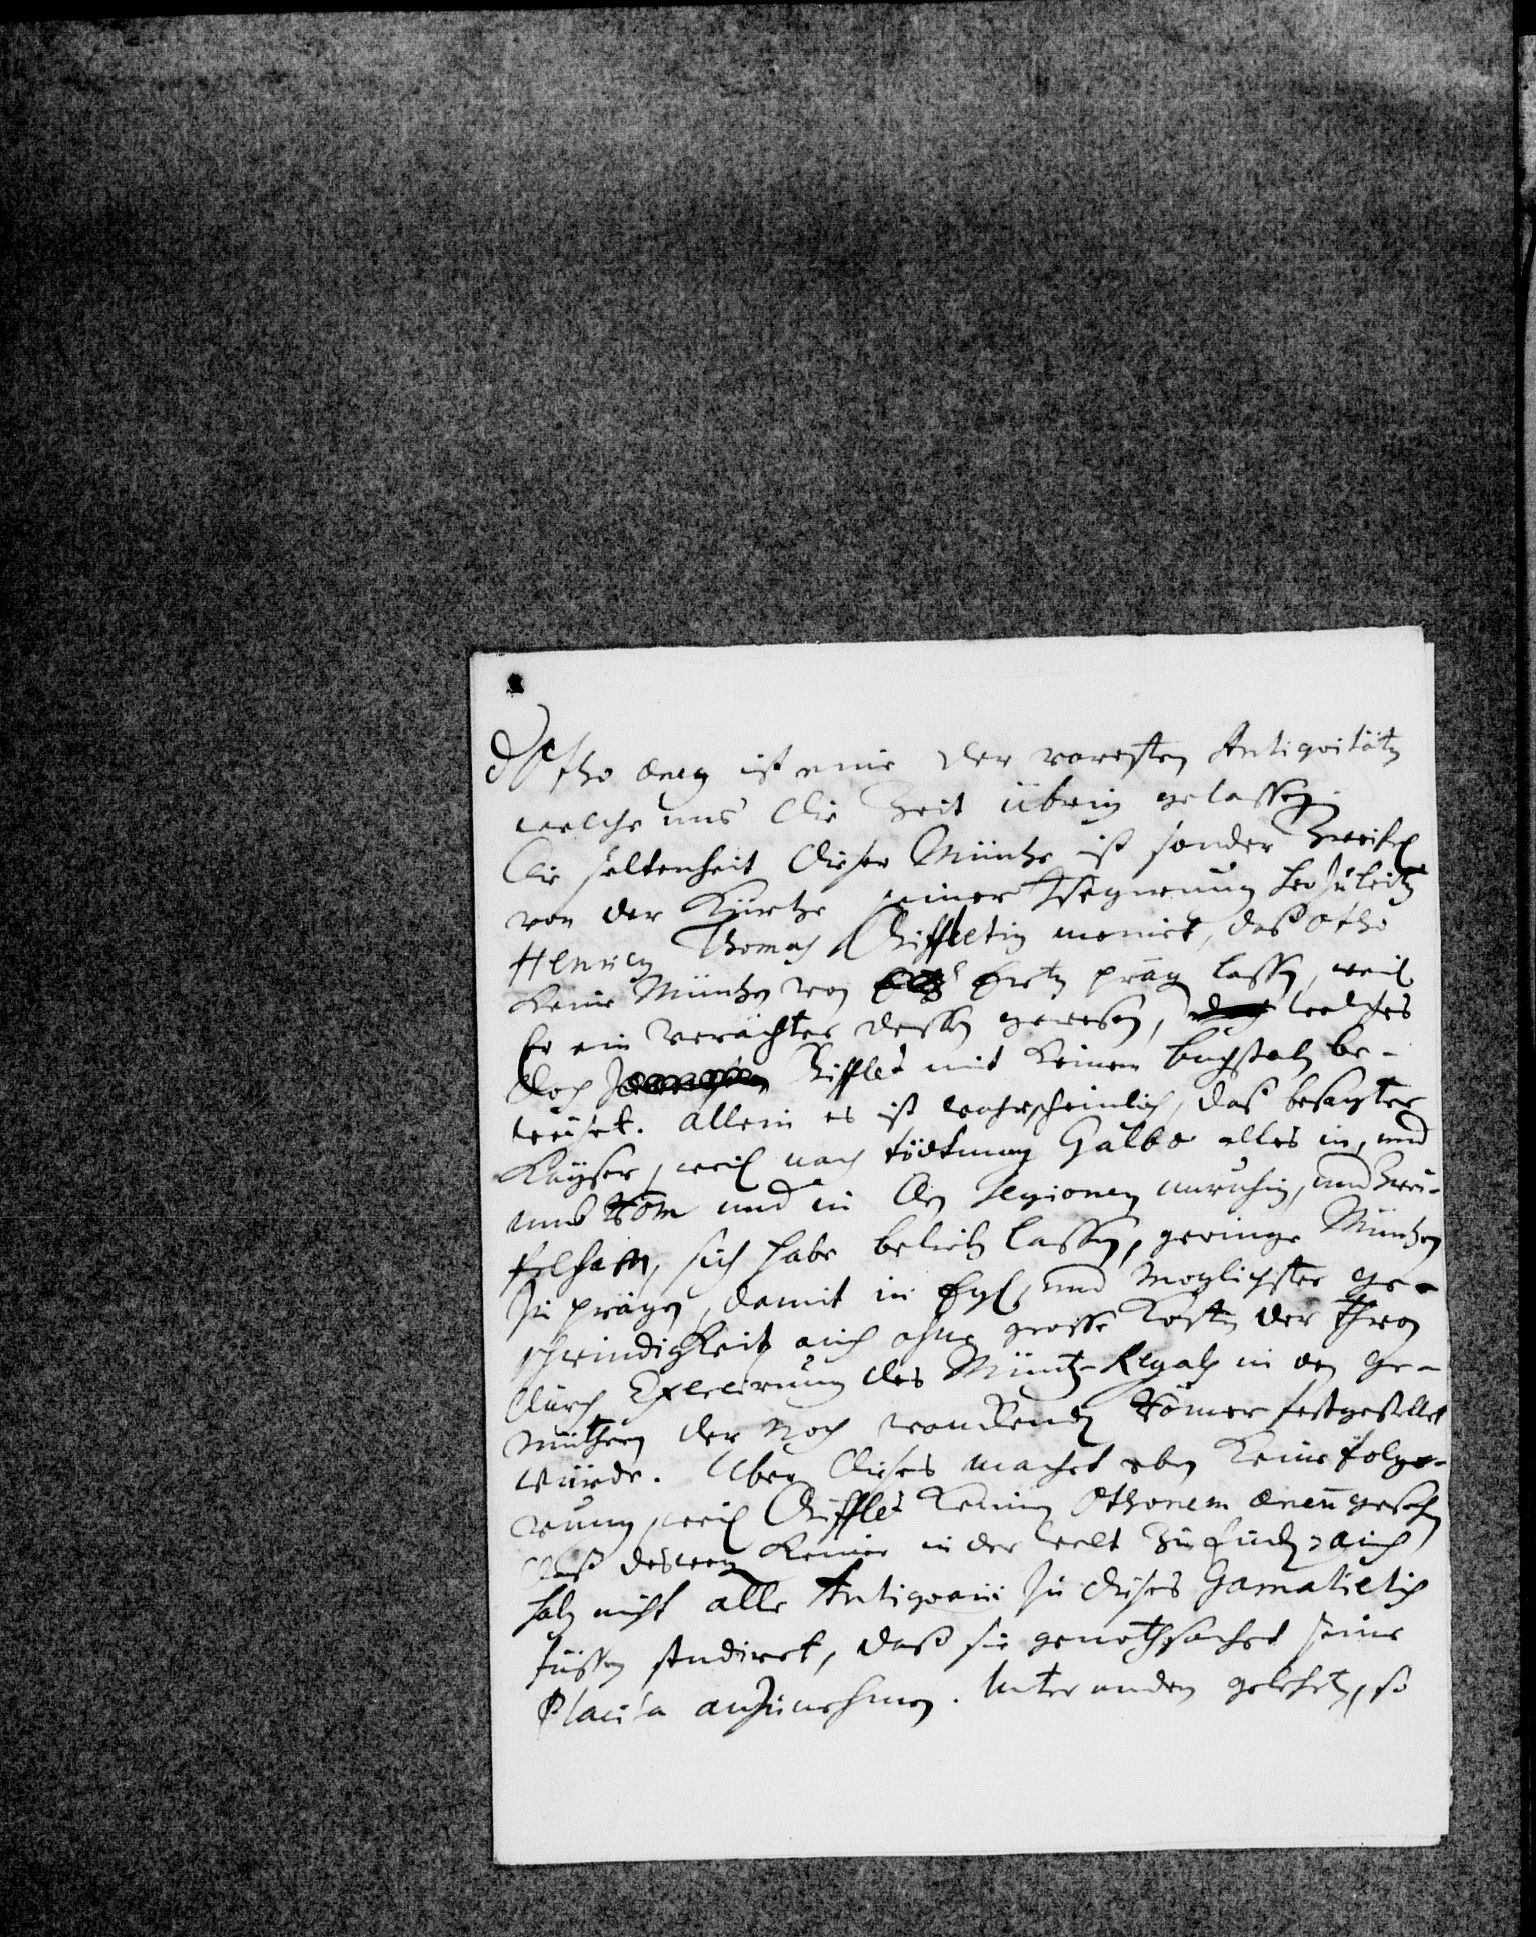 Otho æneus ist eine der raresten Antiqvitäten
welche uns die Zeit übrig gelassen.
Die seltenheit dieser Müntze ist sonder Zweifel
von der Kürtze seiner Regierung herzuleiten
Henricus Thomas Chiffletius meinet, daß Otho
keine Müntzen von Ertz prägen lassen, weil
Er ein verächter dessen gewesen, welches
doch Chifflet mit keinem buchstaben be-
weiset. Allein es ist wahrscheinlich, daß besagter
Kayser, weil nach tödtung Galbæ alles in, und
umb Rom und in den Legionen unruhig, und Zwei-
felhafft, sich habe belieben lassen, geringe Müntzen
zu prägen, damit in Eyl, und möglichster ge-
schwindigkeit auch ohne grosse Kosten der Thron
durch Exercirung des Müntz-Regals in den ge-
müthern der noch wanckenden Römer festgestellet
würde. Uber dieses machet eben keine folge-
rung, weil Chifflet keinen Othonem æneum gesehen
daß deswegen keiner in der Welt zu finden; auch
haben nicht alle Antiqvarii zu dieses Gamalielis
füssen studiret, daß sie genothsachet seine
Placita anzunehmen. Unter andern gelehrten, so